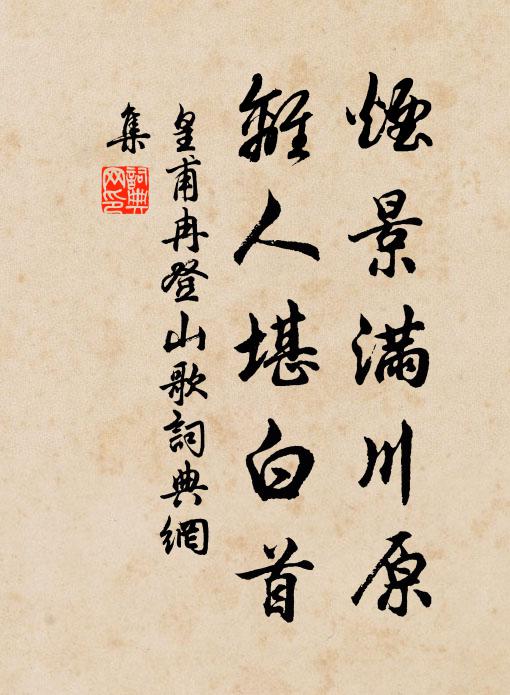 煙景滿川原
離人堪白首
皇甫冉登山歌詞典網
集
詞典
网印